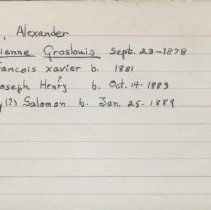 , Alexander
ienne Groslouis Sept. 23-1878
rancois xavier b. 1881
?
oseph Henry b. Oct. 14-1883
y(?) Salomon b. Jan. 25-1889